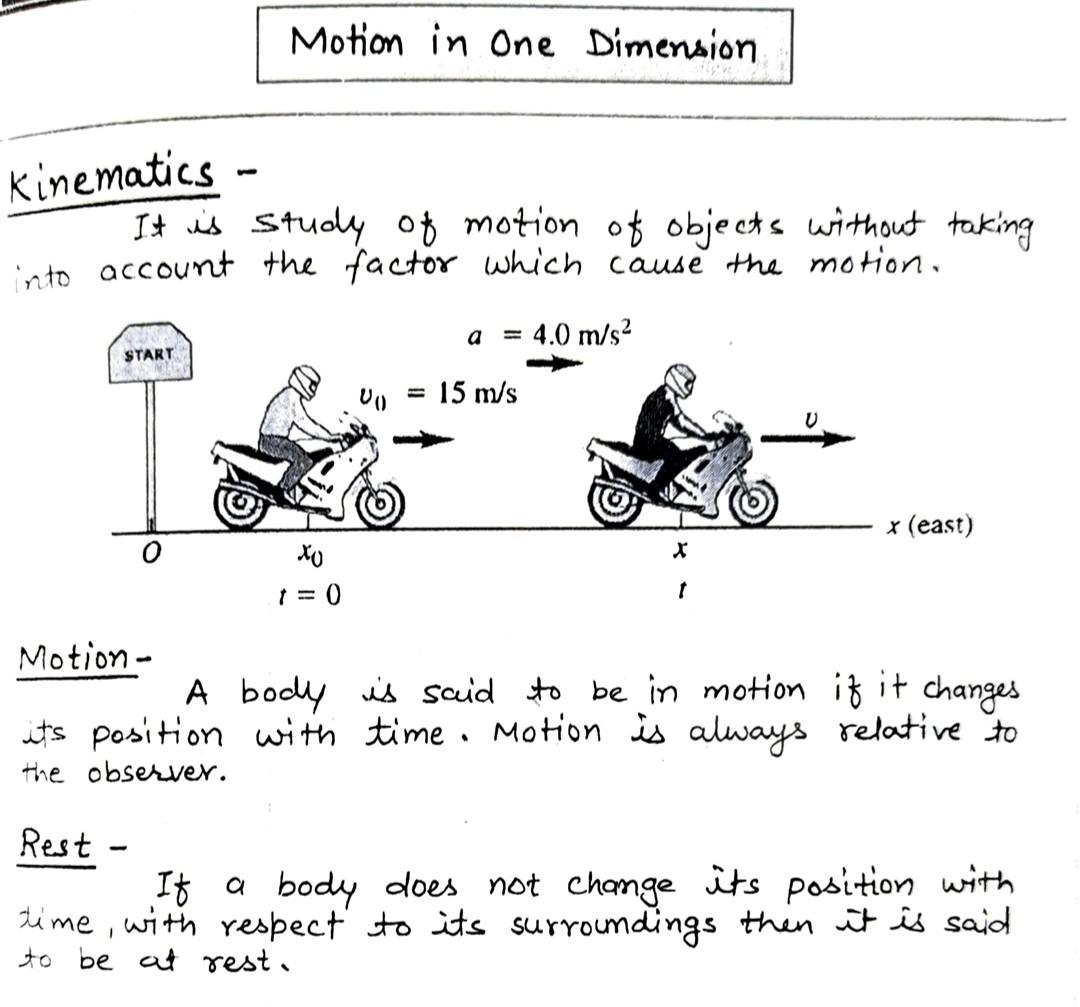 Motion in One Dimension
Kinematics -
It is study of motion of objects without taking
into account the factor which cause the motion.
a = 4.0 m/s²
START
υ₀ = 15 m/s
υ
x (east)
O x₀ x
t = 0 t
Motion -
A body is said to be in motion if it changes
its position with time. Motion is always relative to
the observer.
Rest -
If a body does not change its position with
time, with respect to its surroundings then it is said
to be at rest.